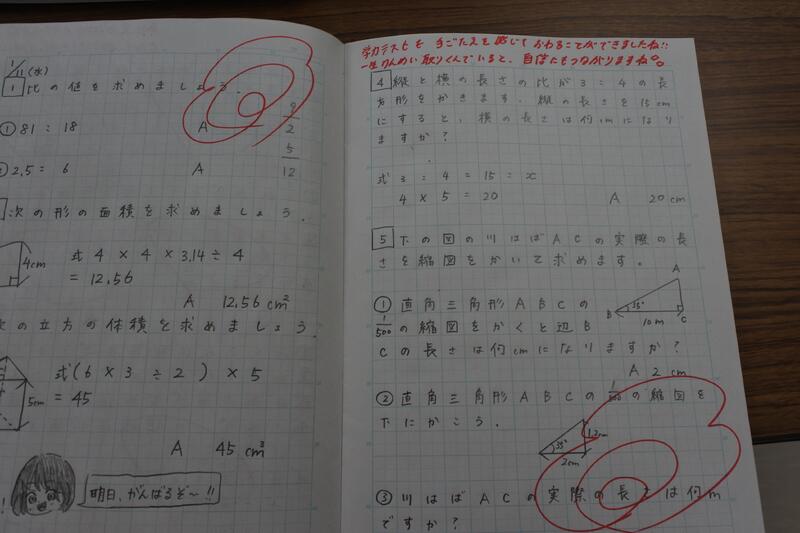 1/11(水)
1 比の値を求めましょう.
① 81:18 A 9/2
2.5:6 A 5/12
次の形の面積を求めましょう.
4cm
式 4×4×3.14÷4
=12.56
A 12.56cm²
の立方の体積を求めましょう
5cm
式(6×3÷2)×5
=45
A 45cm³
明日、がんばるぞ~!!
学力テストを手ごたえを感じておわることができましたね!!
一生けんめい取りくんでいると、自信にもつながりますね。
4 縦と横の長さの比が3:4の長
方形をかきます.縦の長さを15cm
にすると,横の長さは何cmになり
ますか?
式 3:4=15:x
4×5=20
A 20cm
5 下の図の川はばACの実際の長
さを縮図をかいて求めます.
① 直角三角形ABCの
1/500の縮図をかくと辺B
Cの長さは何cmになりますか?
A
B
35°
10m
C
A 2cm
② 直角三角形ABCの の縮図を
下にかこう.
35°
2cm
③ 川はばACの実際の長さは何m
ですか?